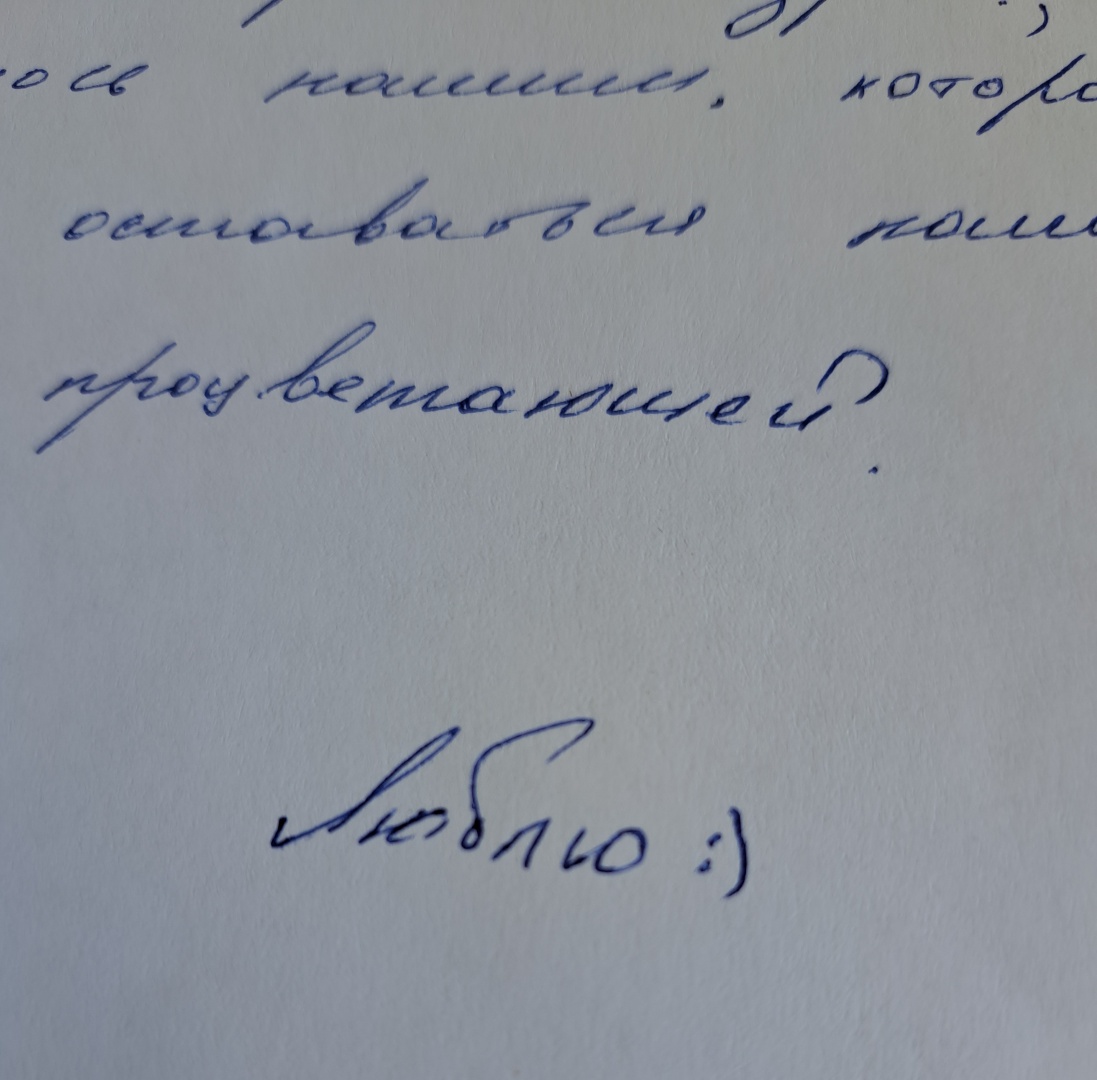 нашим, которо
оставаться наш
процветающей?
Люблю :)